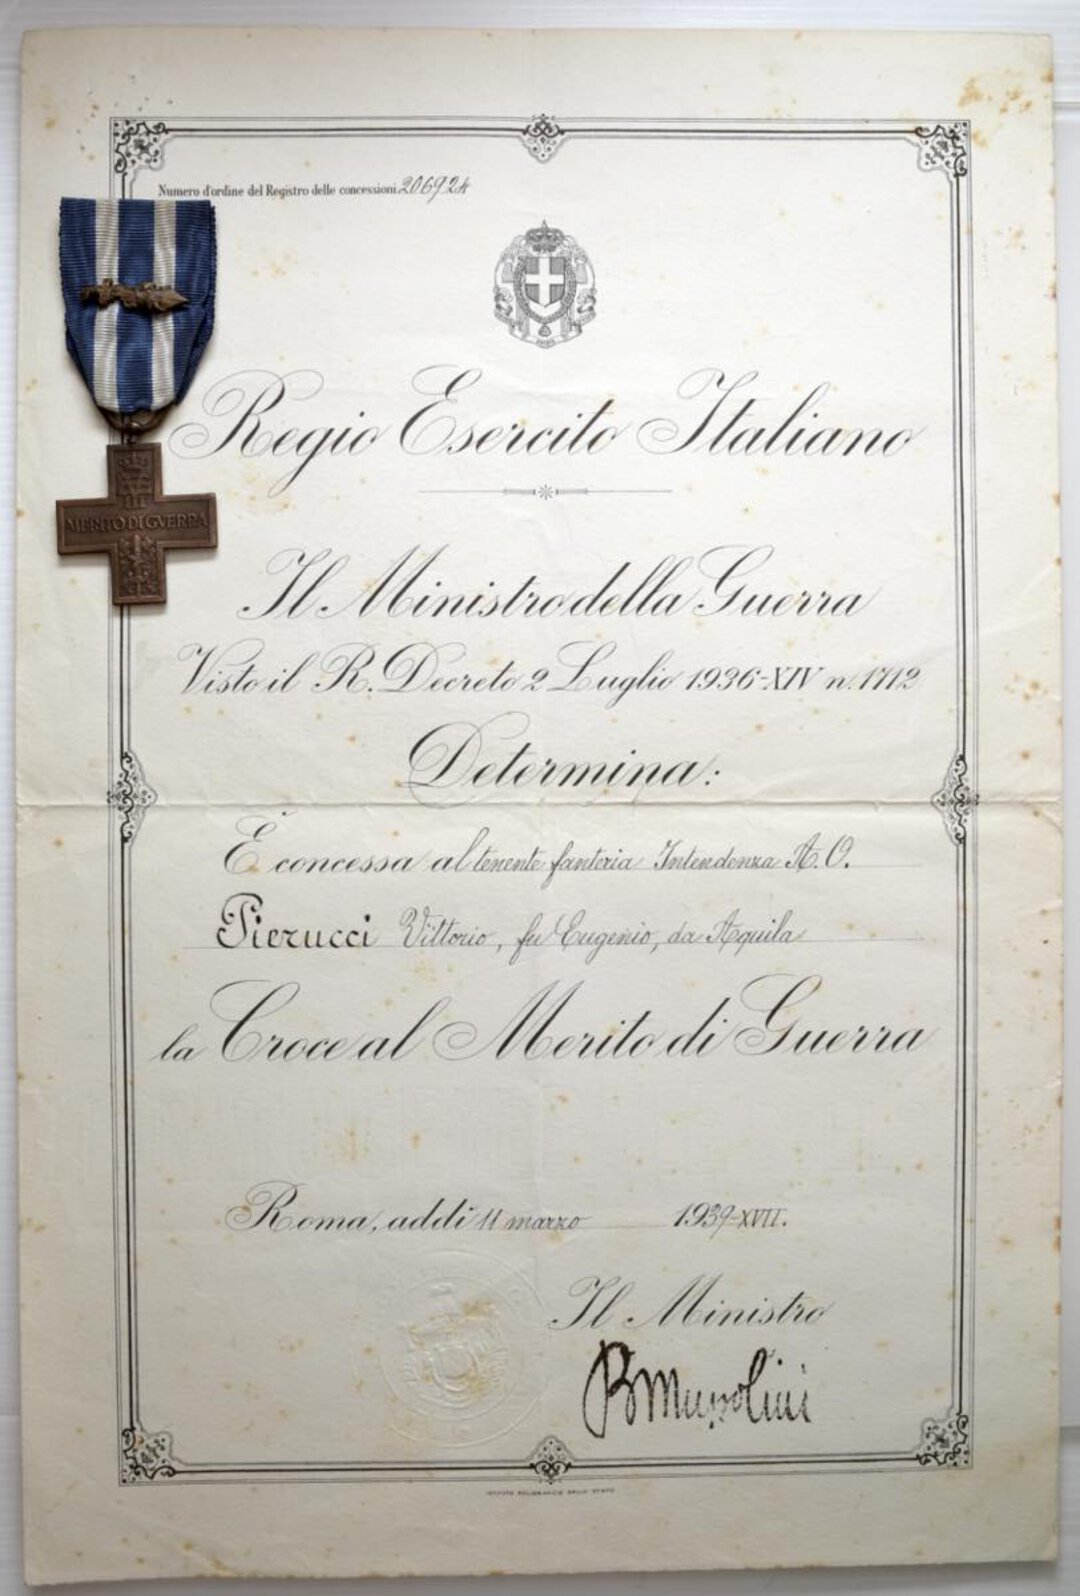 Numero d'ordine del Registro delle concessioni 206924
MERITO DI GVERRA
Regio Esercito Italiano
Il Ministro della Guerra
Visto il R. Decreto 2 Luglio 1936-XIV n. 1712
Determina:
È concessa al tenente fanteria Intendenza A. O.
Pierucci Vittorio, fu Eugenio, da Aquila
la Croce al Merito di Guerra
Roma, addì 11 marzo 1939-XVII.
Il Ministro
B Mussolini
ISTITUTO POLIGRAFICO DELLO STATO